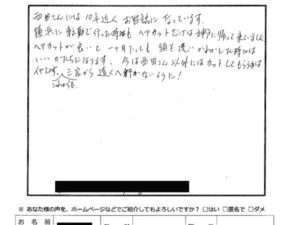 さんには10年近く お世話になっています。
横浜に転勤で行った時も ヘアカットだけは神戸に帰って来ていました
ヘアカットが良いと 一ヶ月たっても 頭を洗い かわかした時には
いい かたちになります。 今は さん以外には カットしてもらうのは
イヤです。三宮から遠くへ動かないように!
※ あなた様の声を、ホームページなどでご紹介してもよろしいですか? □はい □匿名で □ダメ
お 名 前